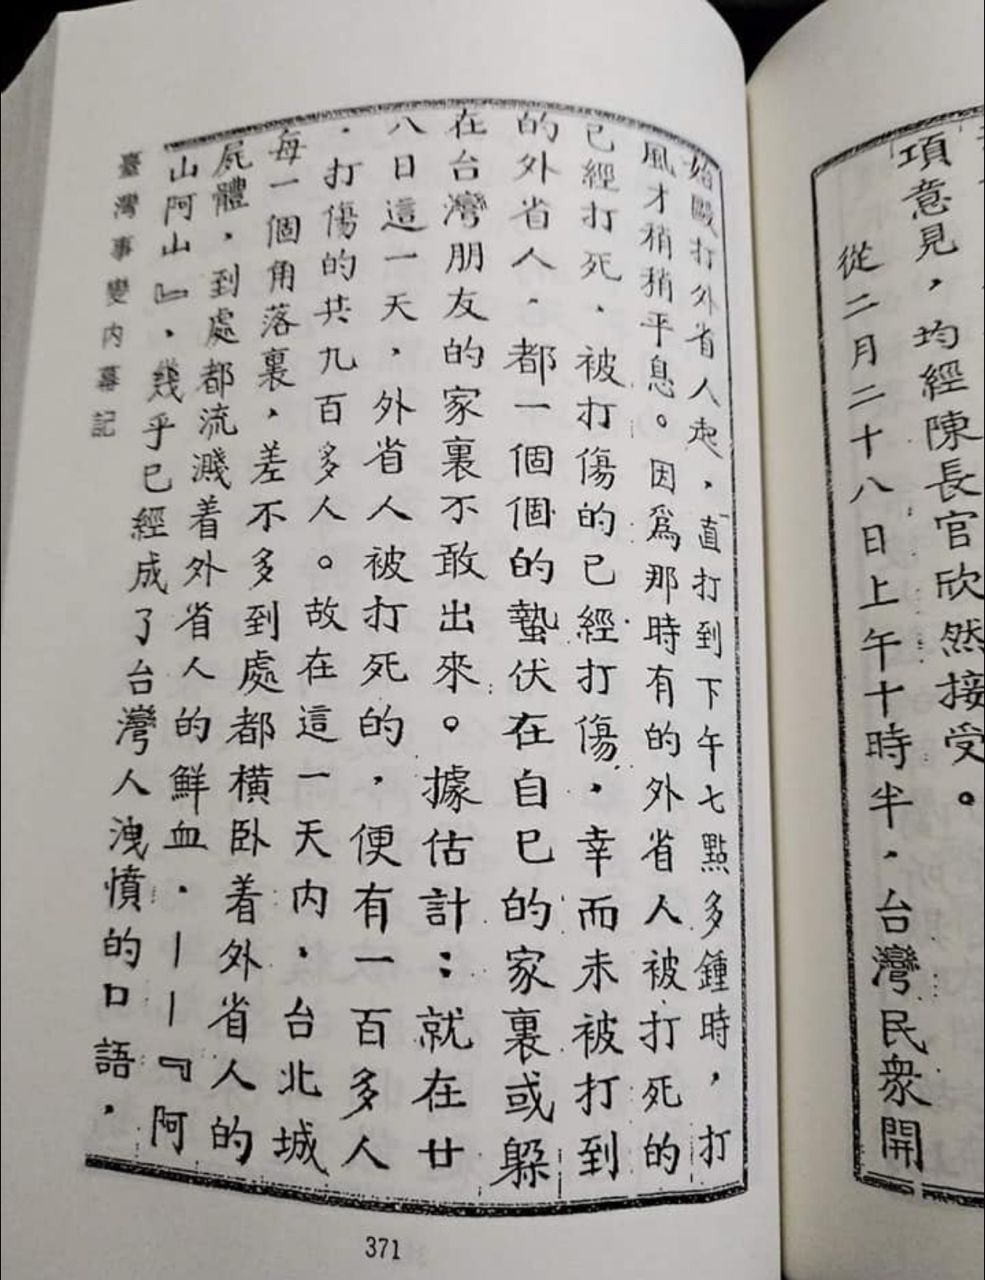 項意見，均經陳長官欣然接受。
從二月二十八日上午十時半，台灣民衆開
始毆打外省人起，直打到下午七點多鍾時，打
風才稍稍平息。因爲那時有的外省人被打死的
已經打死，被打傷的已經打傷，幸而未被打到
的外省人，都一個個的蟄伏在自已的家裏或躲
在台灣朋友的家裏不敢出來。據估計：就在廿
八日這一天，外省人被打死的，便有一百多人
，打傷的共九百多人。故在這一天内，台北城
每一個角落裏，差不多到處都橫卧着外省人的
屍體，到處都流濺着外省人的鮮血，——『阿
山阿山』，幾乎已經成了台灣人洩憤的口語，
臺灣事變内幕記
371